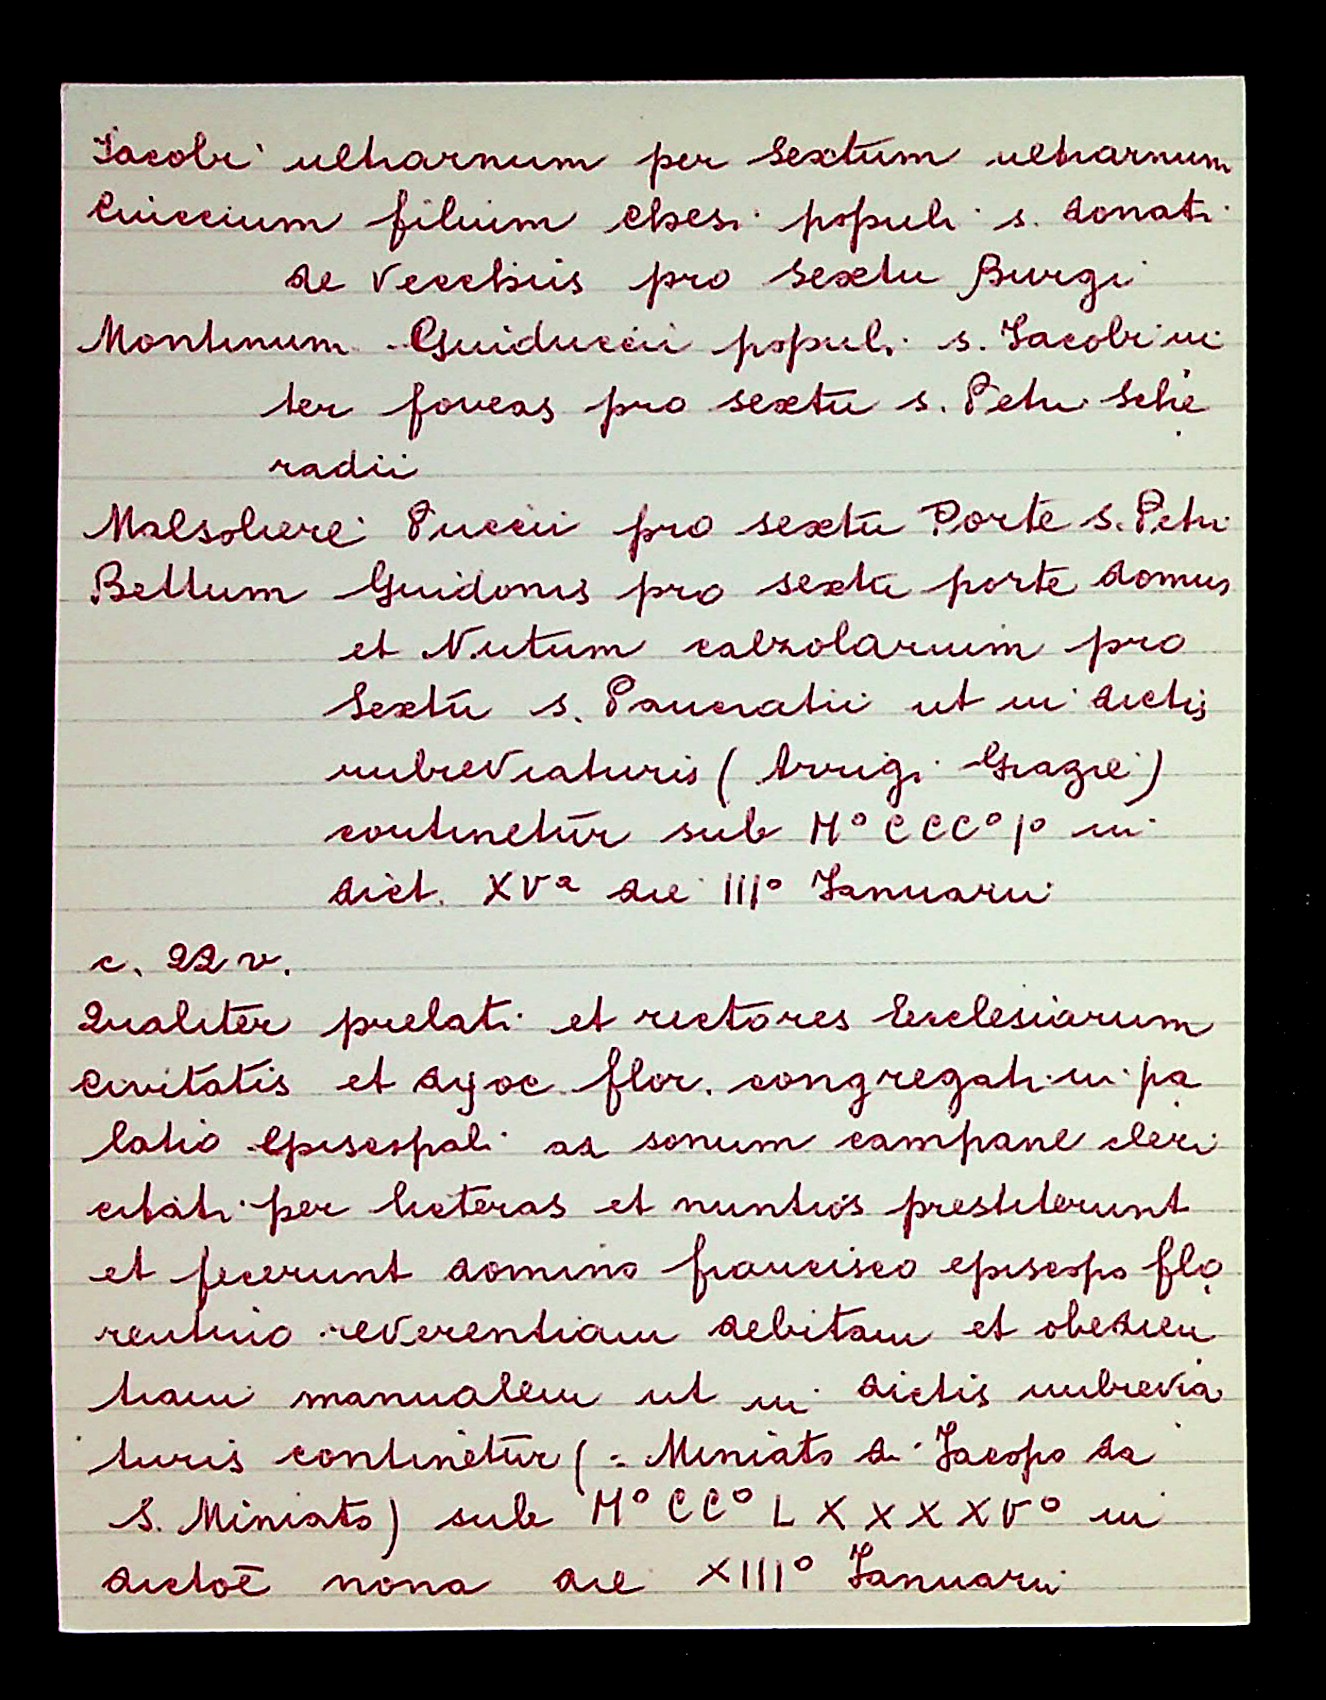 Iacobi ultrarnum per sextum ultrarnum
Cuiccium filium Chesi populi s. donati
de Vecchiis pro sextu Burgi
Montinum Guiduccii populi s. Iacobi in
ter foveas pro sextu s. Petri Sche
radii
Malsoliere Puccii pro sextu Porte s. Petri
Bettum Guidonis pro sextu porte domus
et Nutum calzolarium pro
Sextu s. Pancratii ut in dictis
imbreviaturis (Arrigi Grazie)
continetur sub M° CCC° I° in
dict. XVª die III° Ianuarii
c. 22 v.
Qualiter prelati et rectores Ecclesiarum
Civitatis et dyoc. flor. congregati in pa
latio Episcopali ad sonum campane cleri
citati per licteras et nuntios prestiterunt
et fecerunt domino francisco episcopo flo
rentino reverentiam debitam et obedien
tiam manualem ut in dictis imbrevia
turis continetur (= Miniato di Jacopo da
S. Miniato) sub M° CC° LXXXXV° in
dictoē nona die XIII° Ianuarii